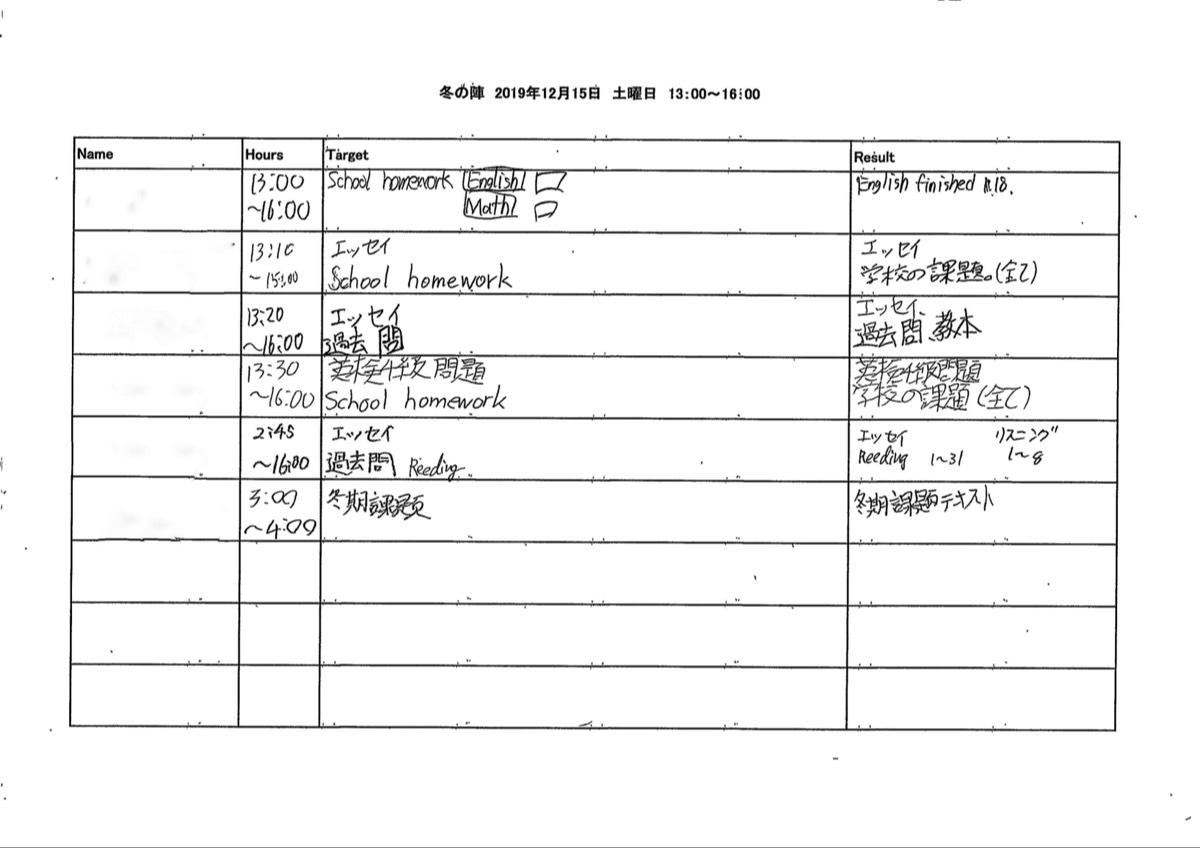 冬の陣 2019年12月15日 土曜日 13:00～16:00
Name Hours Target Result
13:00 School homework English English finished p.18.
～16:00 Math
13:10 エッセイ エッセイ
～15:00 School homework 学校の課題。(全て)
13:20 エッセイ エッセイ、
～16:00 過去問 過去問、教本
13:30 英検4級問題 英検4級問題
～16:00 School homework 学校の課題(全て)
2:45 エッセイ エッセイ リスニング
～16:00 過去問 Reeding Reeding 1～31 1～8
3:00 冬期課題 冬期課題テキスト
～4:00